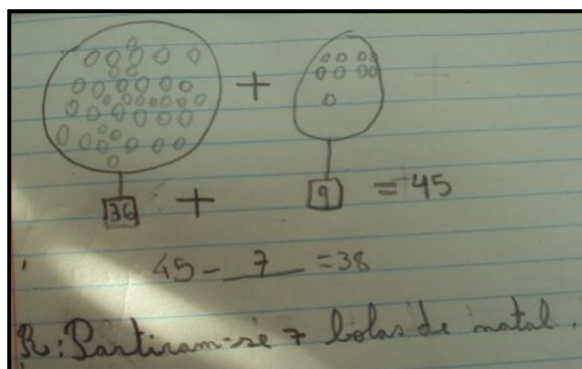 +
36 + 9 = 45
45 - 7 = 38
R: Partiram-se 7 bolas de natal.